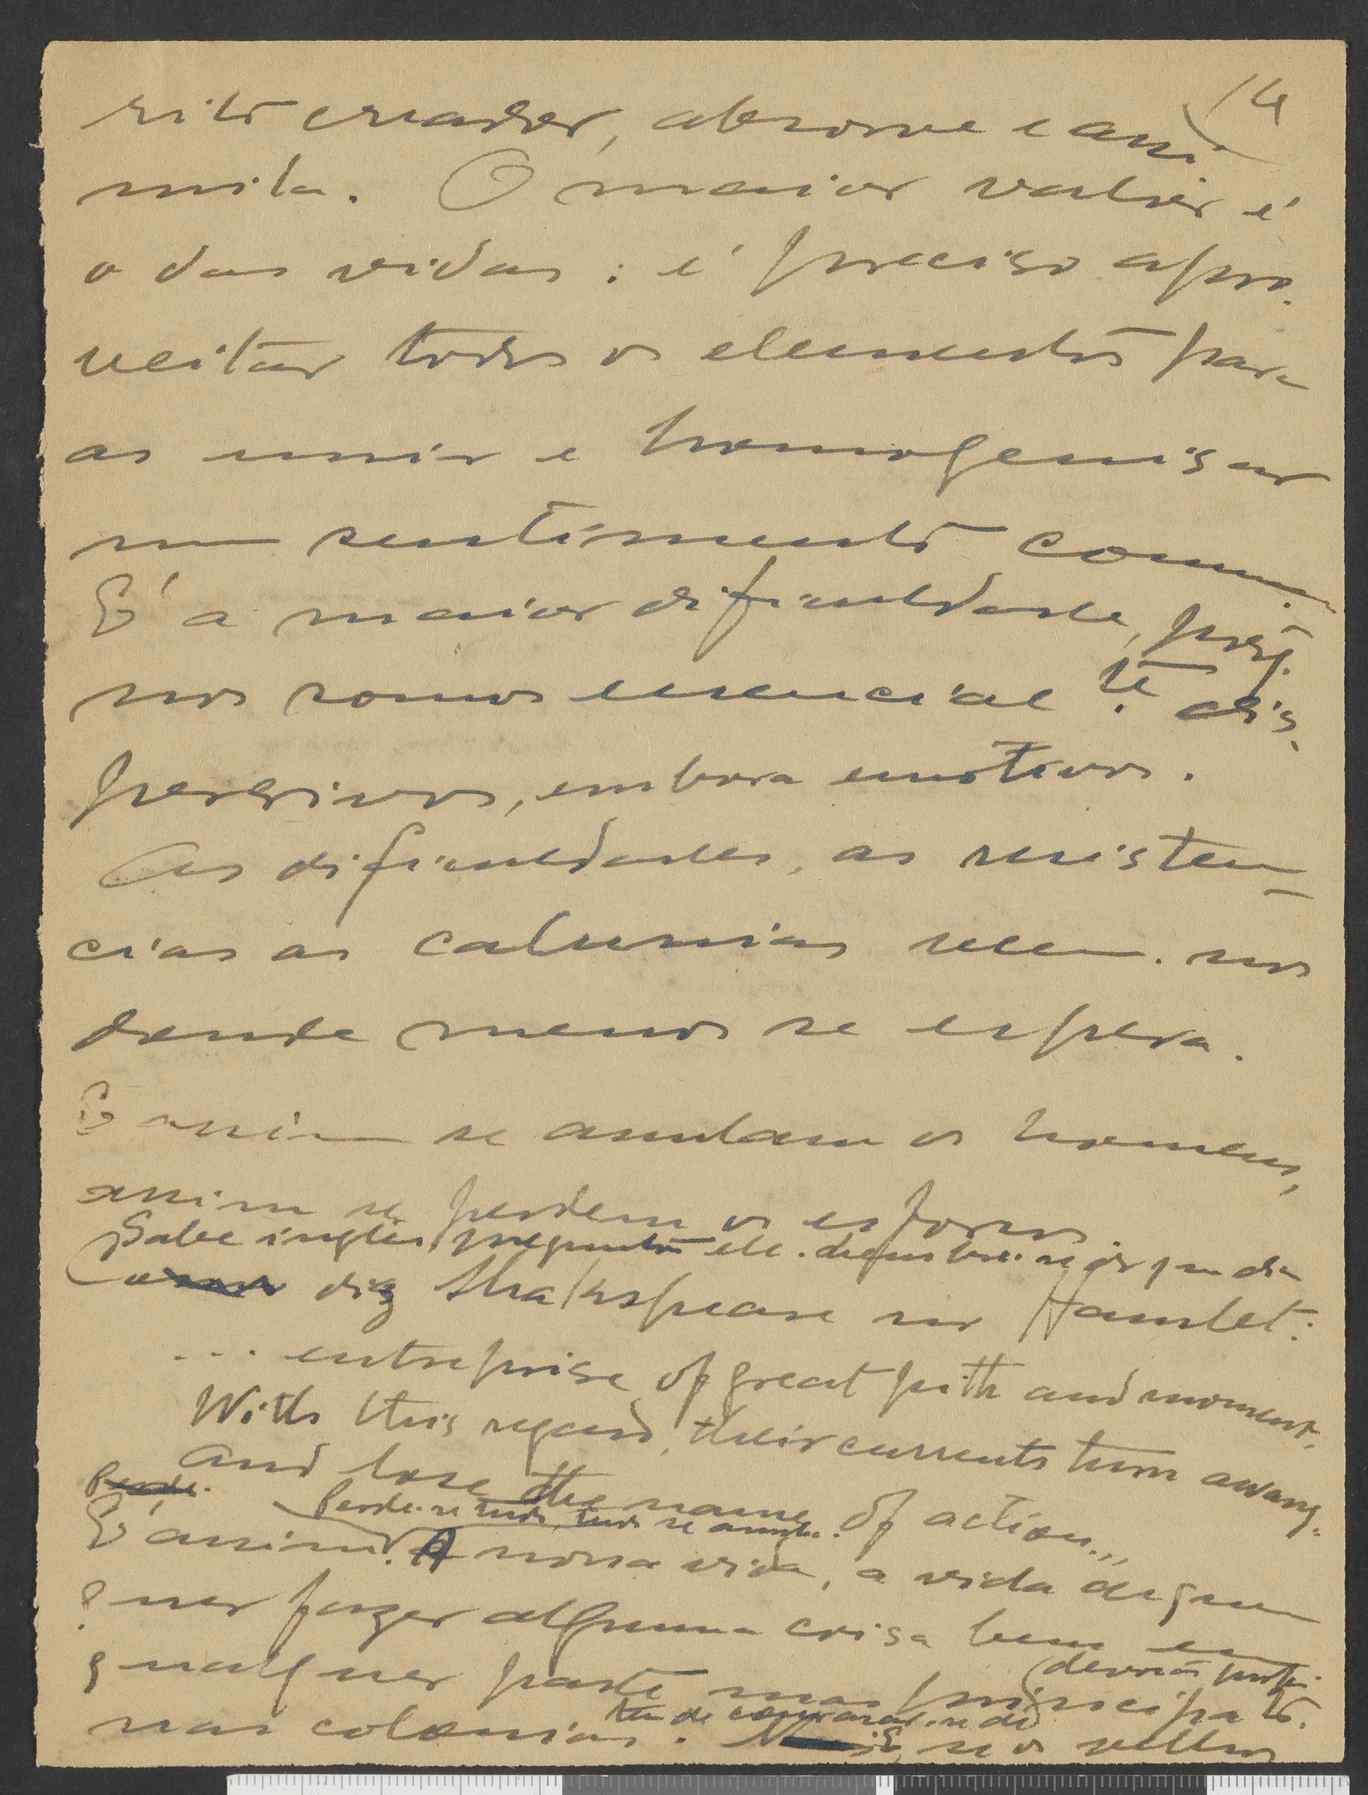 14
rito creador, absorve e assi
mila. O maior valor é
o das vidas: é preciso apro-
veitar todos os elementos para
os unir e homogenisar
num sentimento comum.
E' a maior dificuldade, porq.
nos somos essencialte dis-
persivos, embora emotivos.
As dificuldades, as resisten-
cias as calunias veem-nos
donde menos se espera.
E assim se anulam os homens,
assim se perdem os esforços
Sabe inglês, preguntou ele. lembre-se do que diz
Como diz Shakspeare no Hamlet:
... entreprise of great pith and moment,
With this regard, their currents turn awary,
and lose the name of action...
Perde.
Perde-se tudo, tudo se anula.
E' assim. A nossa vida, a vida de quem
quer fazer alguma coisa bem em
qualquer parte mas principalte.
nas colonias. se os velhos